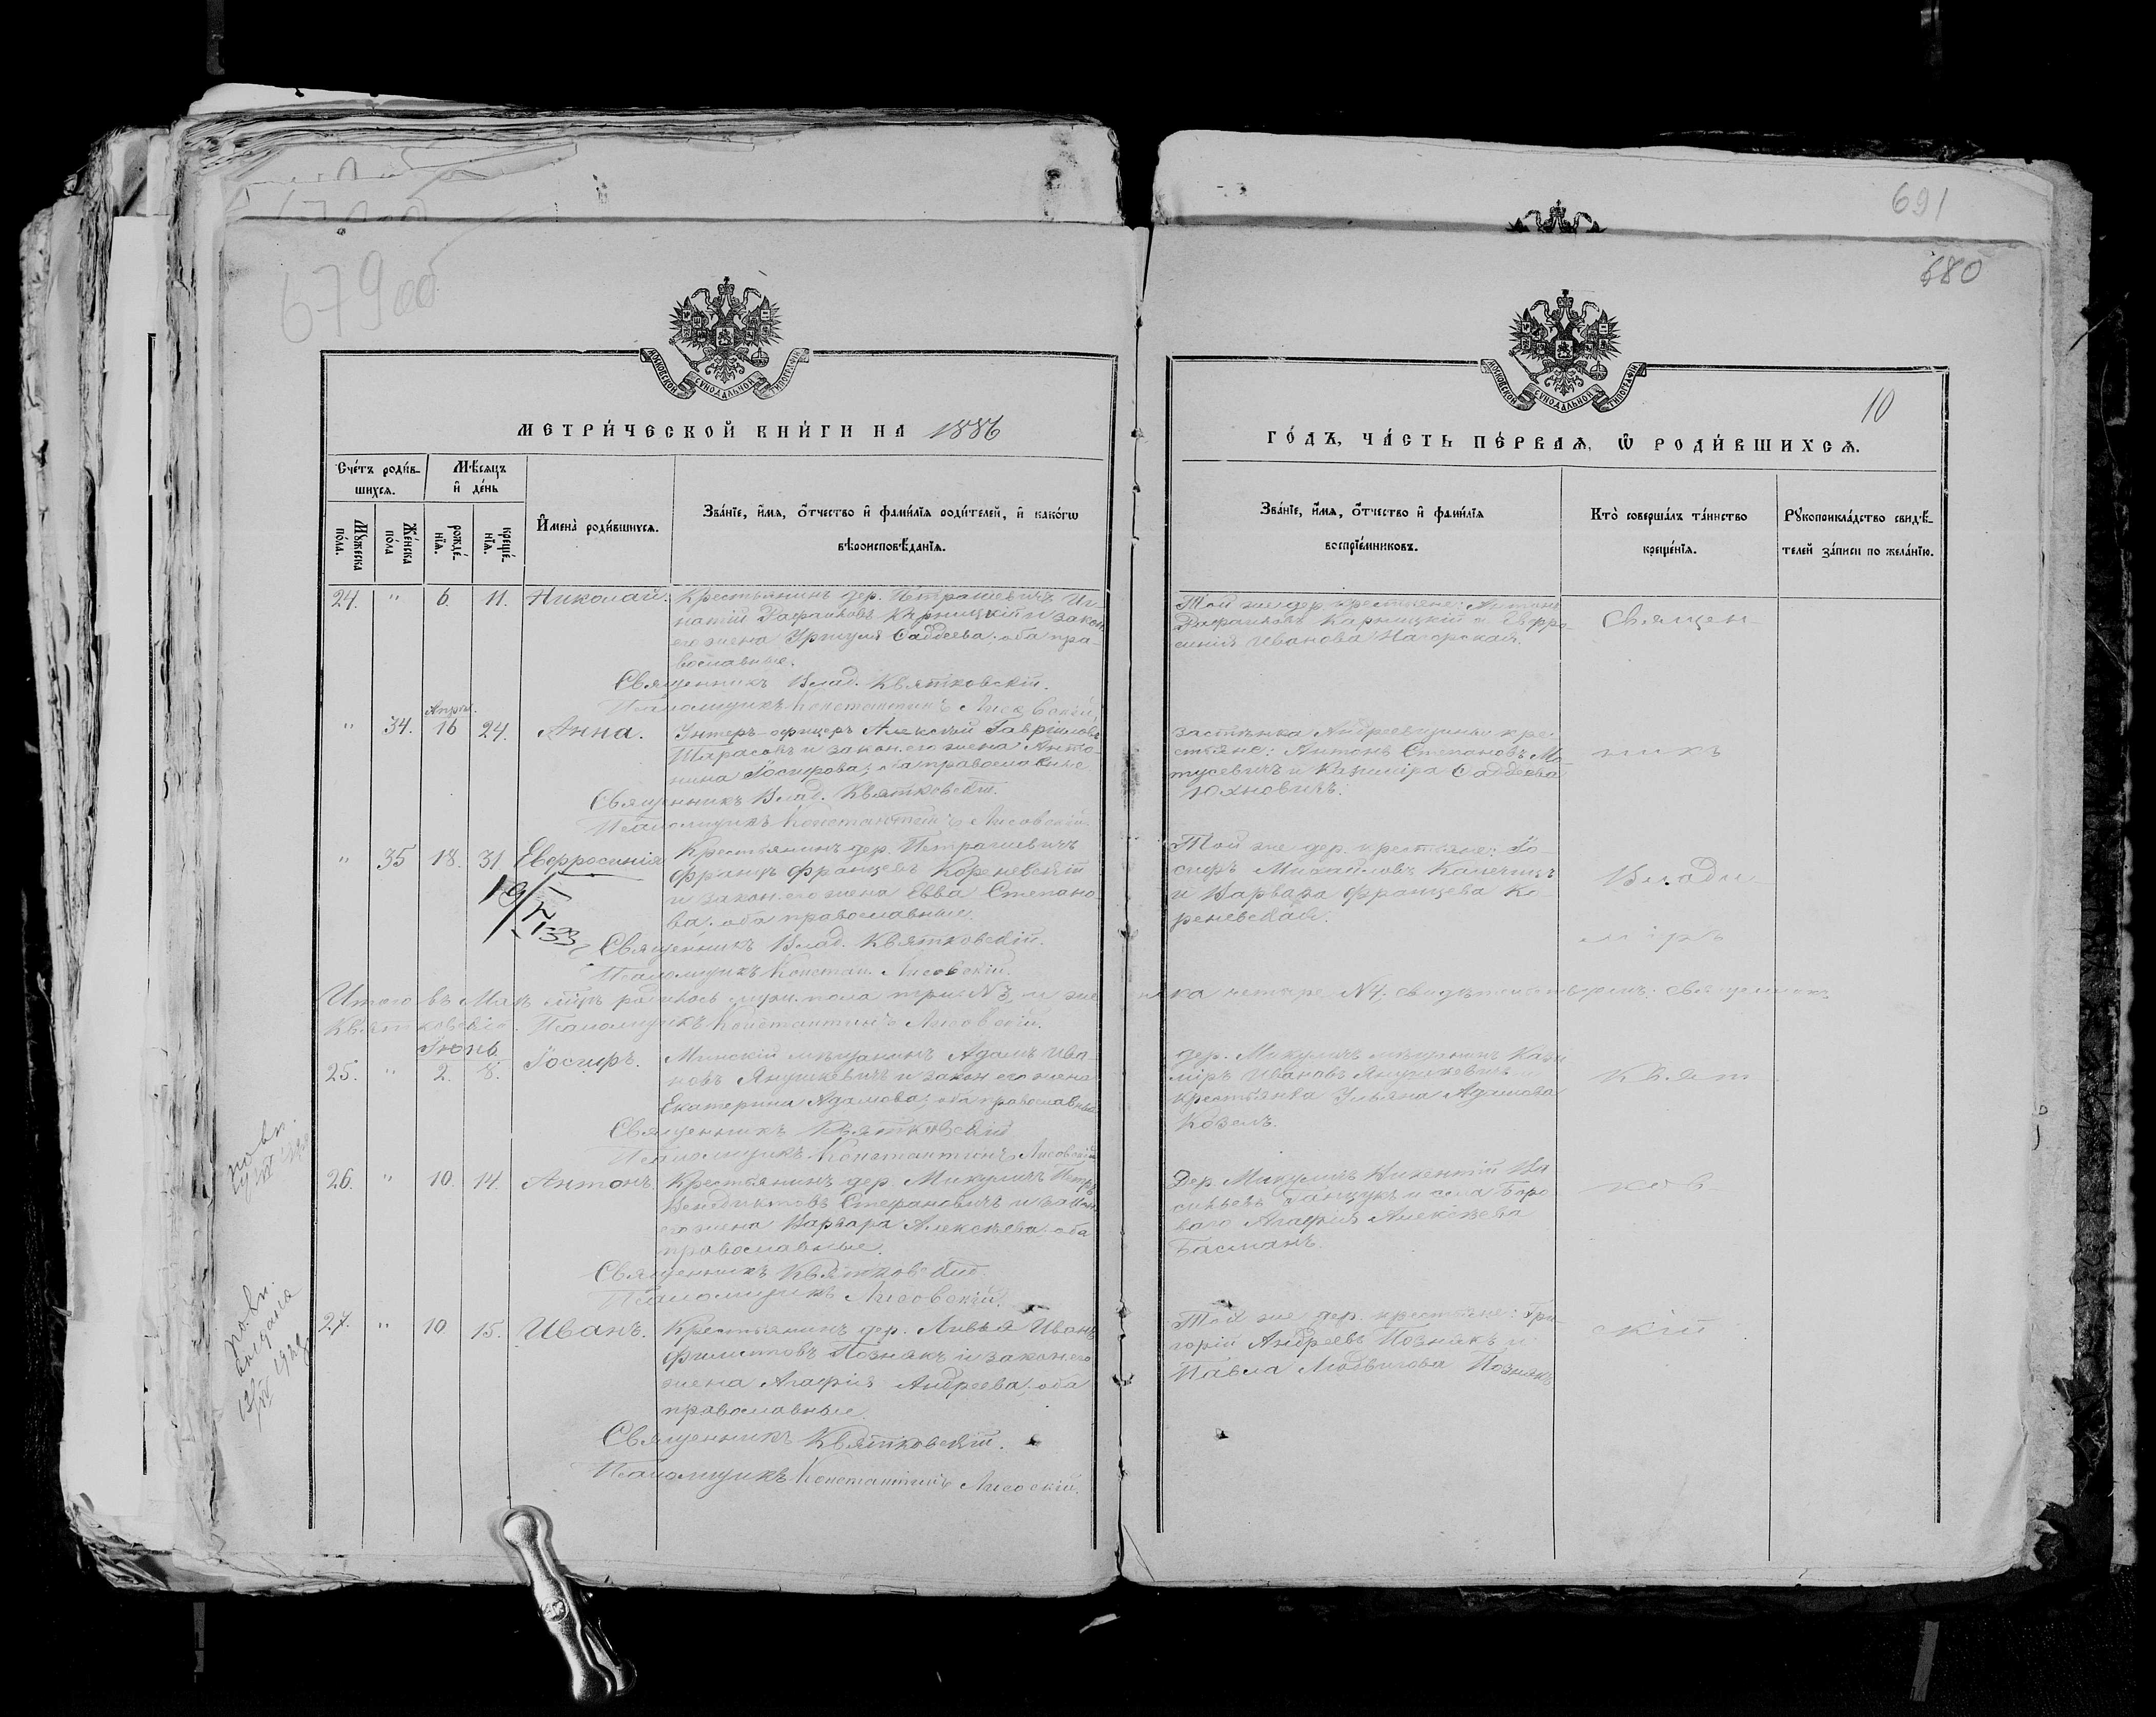 691
679об
680
МОСКОВСКОЙ СУНОДАЛЬНОЙ ТИПОГРАФІИ
МОСКОВСКОЙ СУНОДАЛЬНОЙ ТИПОГРАФІИ
10
МЕТРИ́ЧЕСКОЙ КНИ́ГИ НА 1886
ГО́ДЪ, ЧА́СТЬ ПЕ́РВАЯ, Ѡ РОДИ́ВШИХСЯ.
Сче́тъ роди́в-
шихся.
Мѣсяцъ
и де́нь
Мужеска по́ла.
Же́нска по́ла
рожде́-
нія.
креще́-
нія.
Имена̀ роди́вшихся.
Зва́ніе, и́мя, о́тчество и фами́лія роди́телей, и како́гѡ
вѣроисповѣ́данія.
Зва́ніе, и́мя, о́тчество и фами́лія
воспріе́мниковъ.
Кто̀ соверша́лъ та́инство
креще́нія.
Рукоприкла́дство свидѣ́-
телей за́писи по жела́нію.
24. " 6. 11. Николай. Крестьянинъ дер. Петрашевичъ Иг-
натій Рафаиловъ Карницкій и закон.
его жена Уршуля Саддеева; оба пра-
вославные.
Священникъ Влад. Квятковскій.
Псаломщикъ Константинъ Лисовскій.
Той же дер. крестьяне: Антонъ
Рафаиловъ Карницкій и Евфро-
синія Иванова Нагорская.
Священ-
Апрѣл.
" 34. 16 24. Анна. Унтеръ-офицеръ Алексѣй Гавріиловъ
Тарасовъ и закон. его жена Анто-
нина Іосифова; оба православные
Священникъ Влад. Квятковскій.
Псаломщикъ Константинъ Лисовскій.
застѣнка Андреевщины кре-
стьяне: Антонъ Степановъ Ма-
тусевичъ и Казиміра Саддеева
Юхновичъ.
никъ
" 35 18. 31 Евфросинія Крестьянинъ дер. Петрашевичъ
Францъ Францевъ Кореневскій
и закон. его жена Евва Степано-
ва; оба православные.
Священникъ Влад. Квятковскій.
Псаломщикъ Констан. Лисовскій.
19/V 33
Той же дер. крестьяне: Іо-
сифъ Михайловъ
и Варвара Францева Ко-
реневская.
Влади-
міръ
Итого въ Маѣ м-цѣ родилось муж. пола три №3, и жен-
ска четыре №4. Священникъ
Квятковскій. Псаломщикъ Константинъ Лисовскій.
Іюнь
25. " 2. 8. Іосифъ. Минскій мѣщанинъ Адамъ Ива-
новъ Янушкевичъ и закон. его жена
Екатерина Адамова; оба православные
Священникъ Квятковскій
Псаломщикъ Константинъ Лисовскій
дер. Микуличъ мѣщанинъ Кази-
міръ Ивановъ Янушкевичъ и
крестьянка Ульяна Адамова
Козелъ.
Квят
26. " 10. 14. Антонъ. Крестьянинъ дер. Микуличъ Петръ
Венедиктовъ Стефановичъ и закон.
его жена Варвара Алексѣева; оба
православные.
Священникъ Квятковскій.
Псаломщикъ Лисовскій.
Дер. Микуличъ Викентій Ва-
сильевъ Ганцукъ и села Боро-
ваго Агафія Алексѣева
Басманъ.
ков
27. " 10 15. Иванъ. Крестьянинъ дер. Ливья Иванъ
Филиповъ Познякъ и закон. его
жена Агафія Андреева; оба
православные.
Священникъ Квятковскій.
Псаломщикъ Константинъ Лисовскій.
Той же дер. крестьяне: Гри-
горій Андреевъ Познякъ и
Павла Людвигова Познякъ
скій